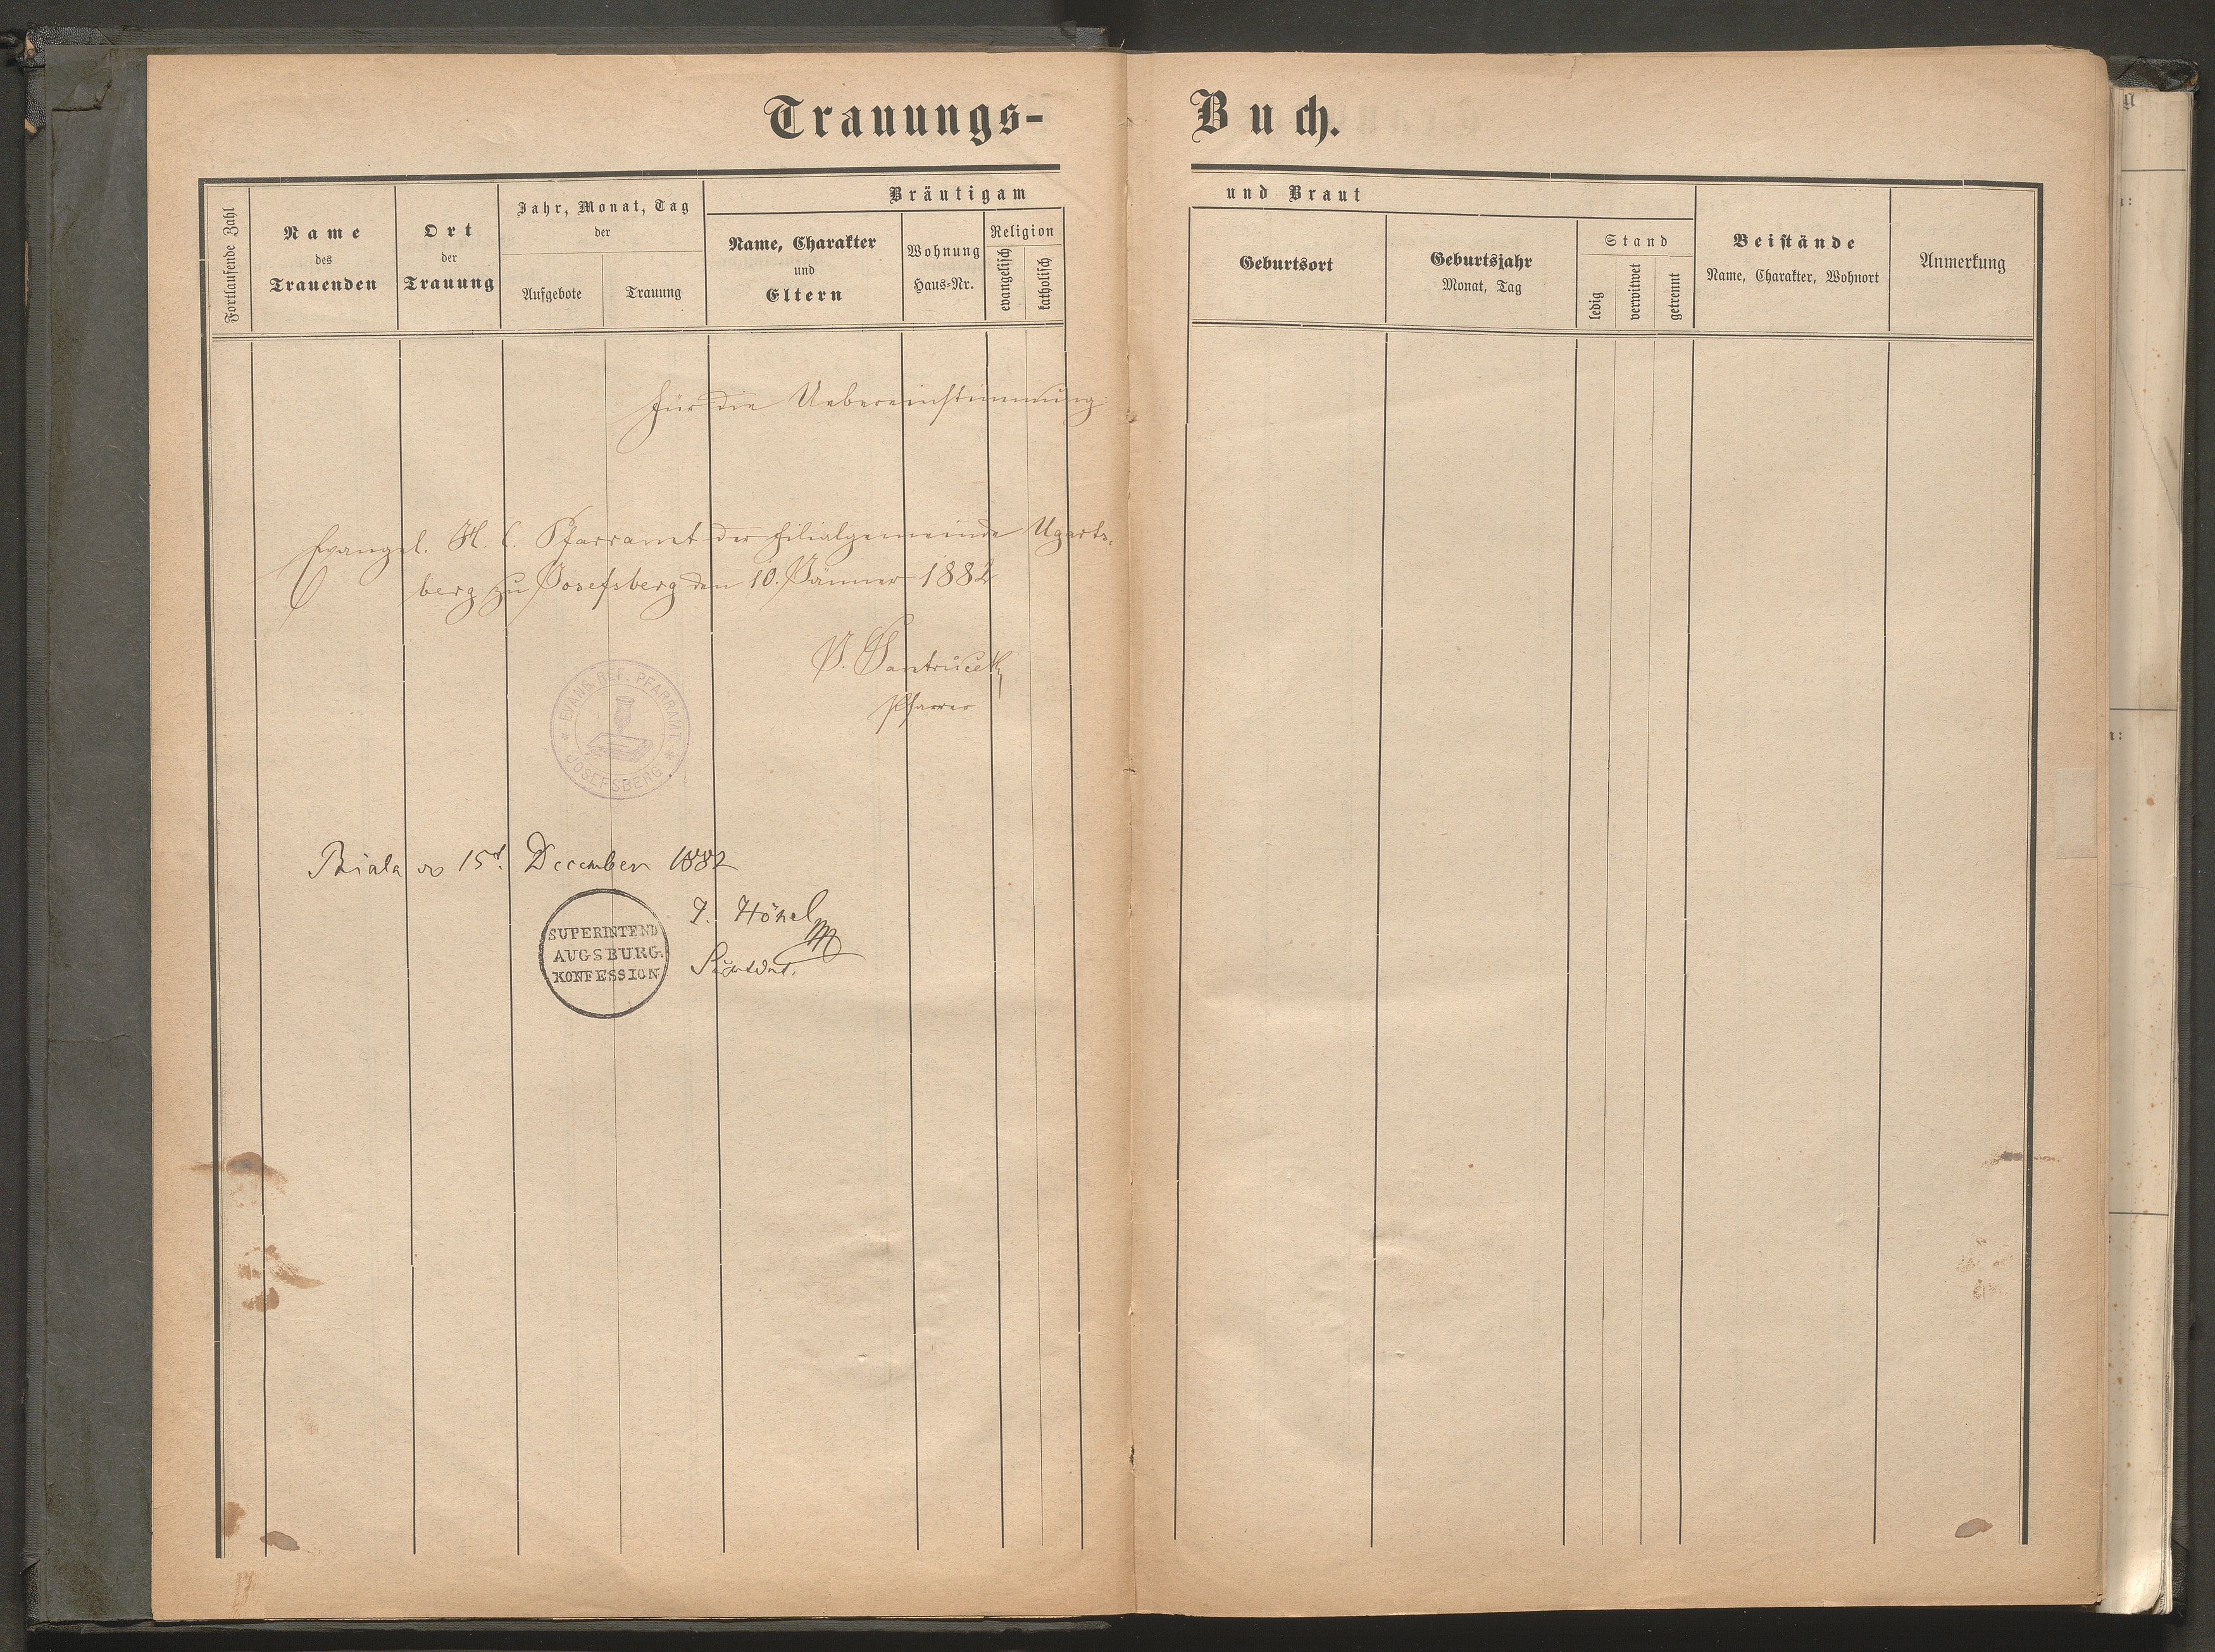 Trauungs-Buch.
Fortlaufende Zahl
Name des Trauenden
Ort der Trauung
Jahr, Monat, Tag der
Aufgebote
Trauung
Bräutigam und Braut
Name, Charakter und Eltern
Wohnung Haus-Nr.
Religion
evangelisch
katholisch
Geburtsort
Geburtsjahr Monat, Tag
Stand
ledig
verwitwet
getrennt
Beistände
Name, Charakter, Wohnort
Anmerkung
Für die Uebereinstimmung
Evangel. H. C. Pfarramt der Filialgemeinde Ugarts-
berg zu Josefsberg den 10. Jänner 1882
Pfarrer
EVANG. REF. PFARRAMT
* JOSEFSBERG *
Biala 15t. December 1882
J. Hönel
SUPERINTEND
AUGSBURG.
KONFESSION